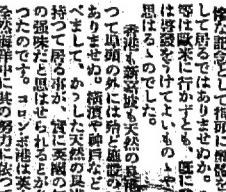 な記念として指頭に
して居るではありませぬか。
等は歐米に行かずとも、既
は啓發をうけてよいもの
思はるゝのでした。
香港も新嘉坡も天然の良港
つて埠頭の外には殆ど施設の
ありませぬ。横濱や神戸など
べまして、かうした天然の良
持つて居る事が、實に英國の
の强味だと思はせられるとが
つたのです。コロンボ港は英
全然海洋中に其の努力に依つ